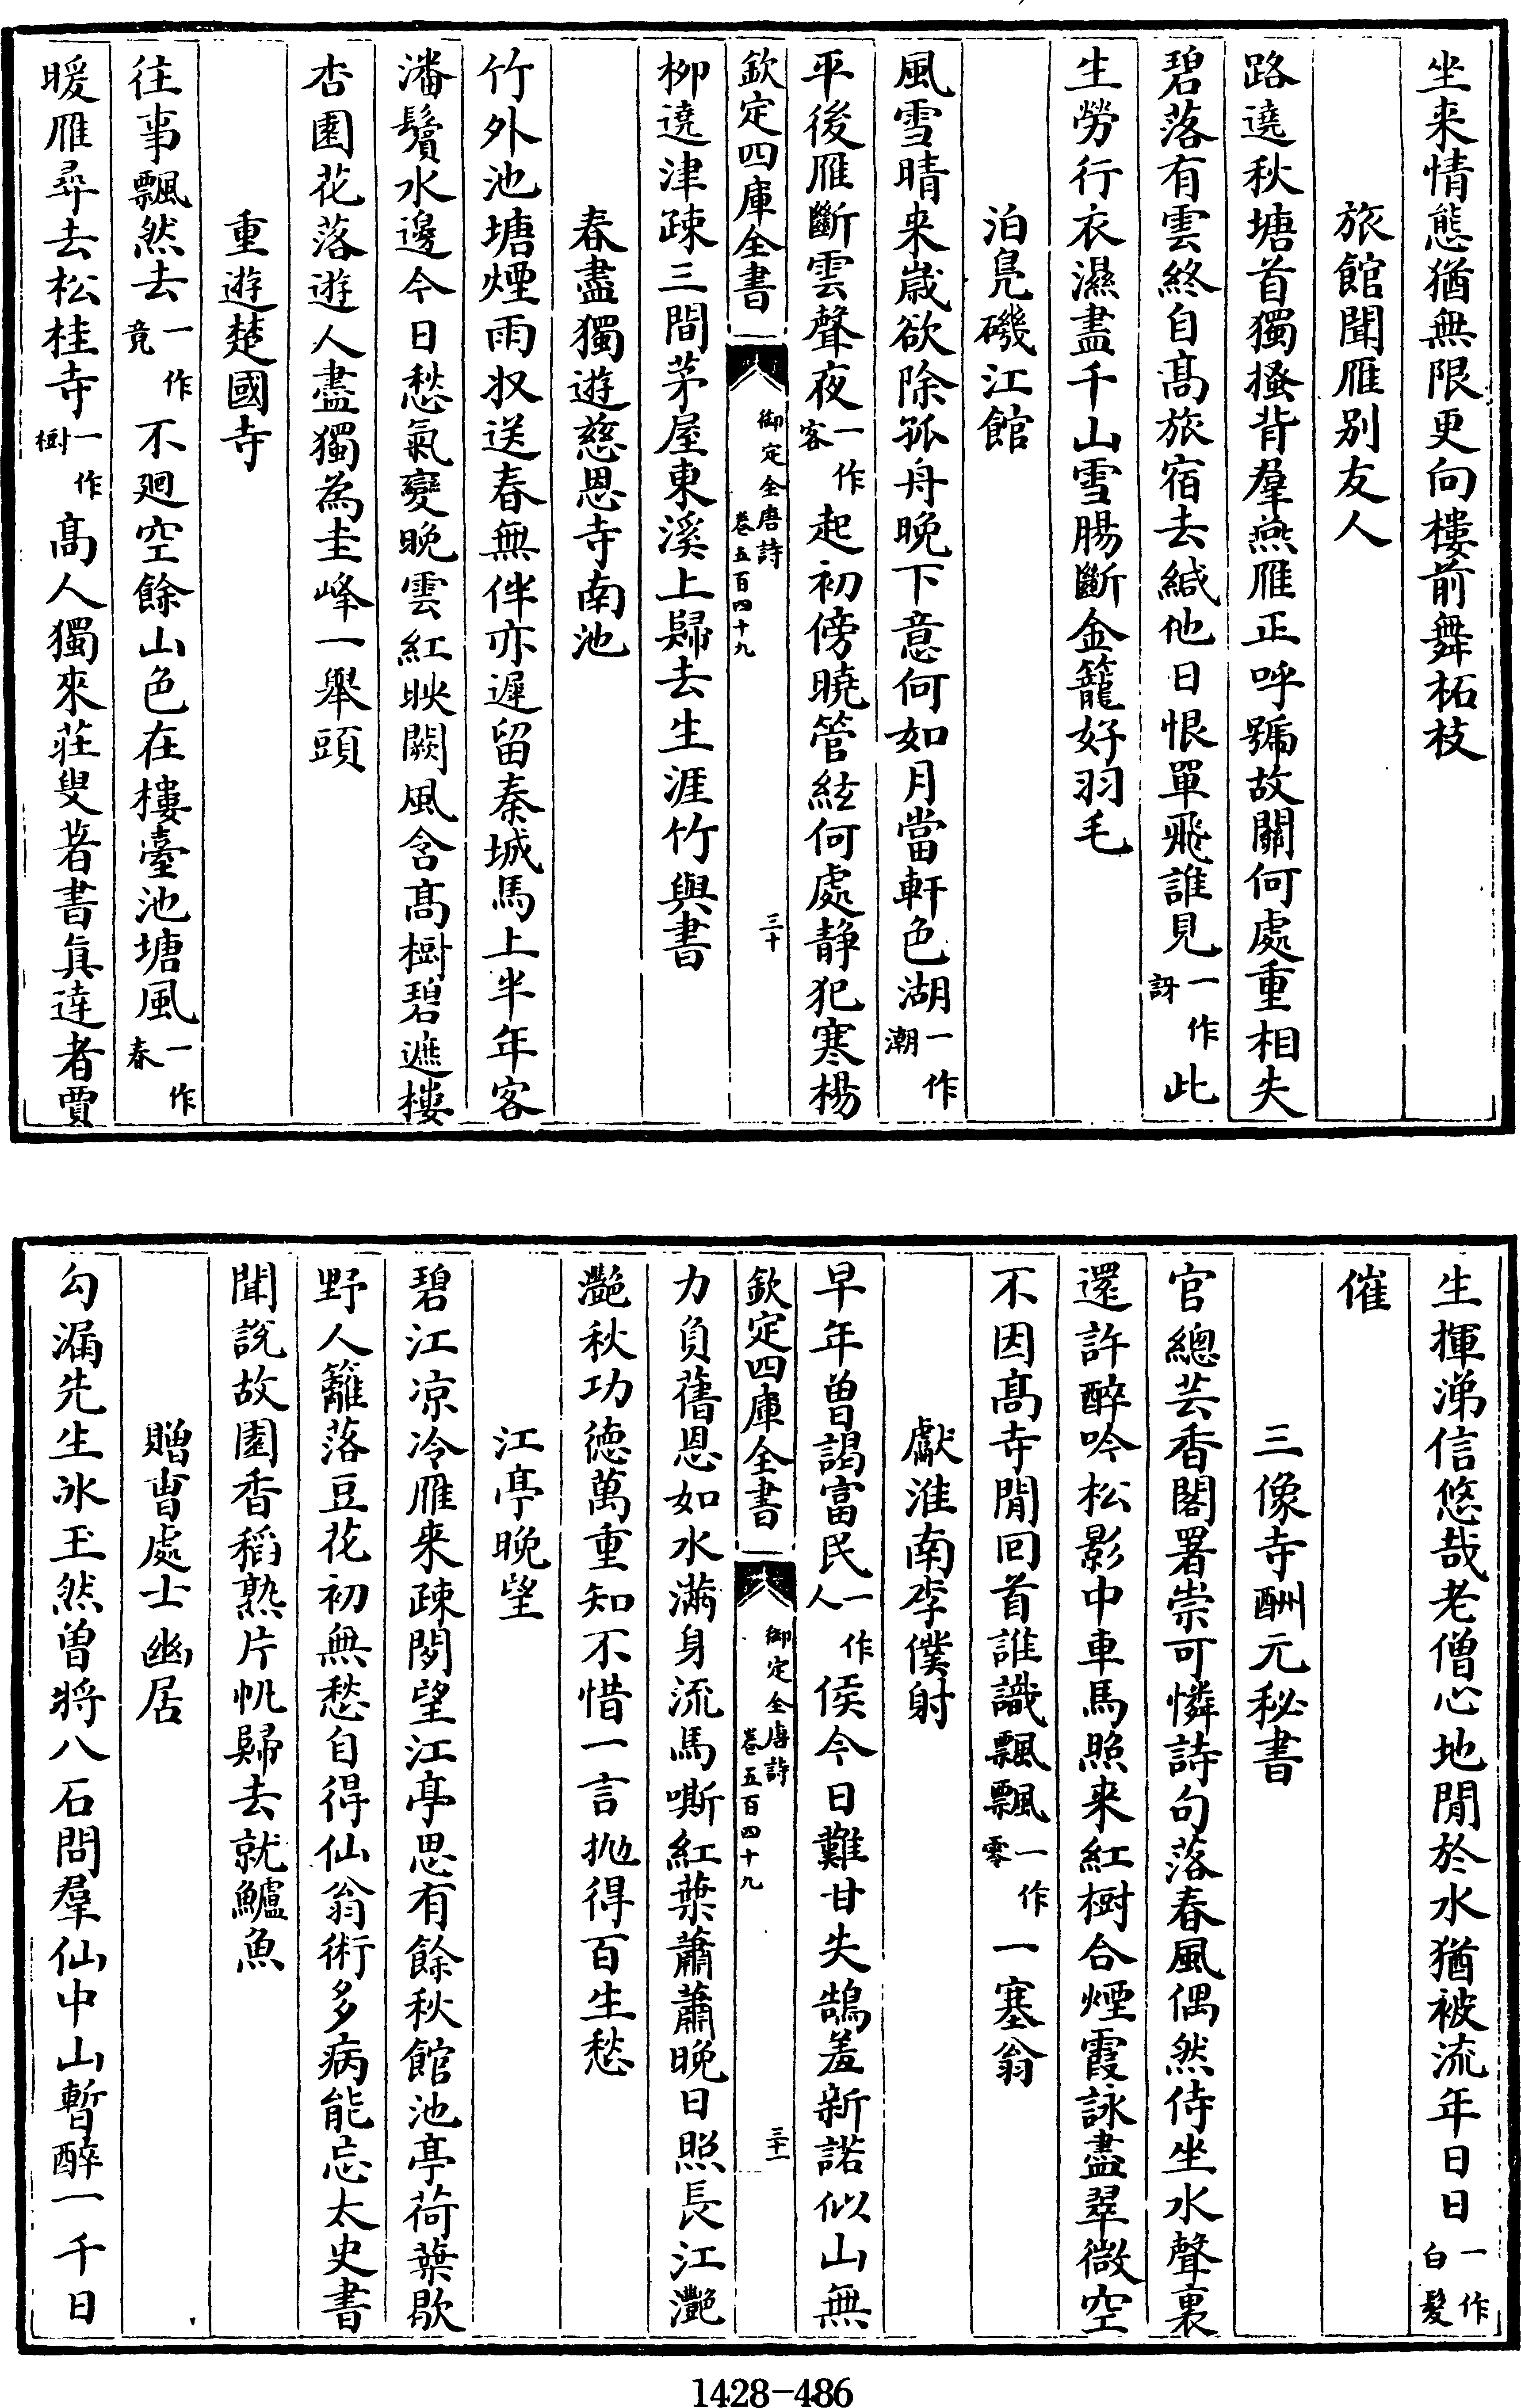 坐来情態猶無限更向樓前舞柘枝
旅館聞雁别友人
路遶秋塘首獨搔背羣燕雁正呼號故關何處重相失
碧落有雲終自髙旅宿去緘他日恨單飛誰見一作訝此
生勞行衣濕盡千山雪腸斷金籠好羽毛
泊凫磯江館
風雪晴来歳欲除孤舟晚下意何如月當軒色湖一作潮
平後雁斷雲聲夜一作客起初傍曉管絃何處静犯寒楊
欽定四庫全書
御定全唐詩
卷五百四十九
三十
柳遶津疎三間茅屋東溪上歸去生涯竹與書
春盡獨遊慈恩寺南池
竹外池塘煙雨収送春無伴亦遲留秦城馬上半年客
潘鬢水邊今日愁氣變晚雲紅映闕風含髙樹碧遮樓
杏園花落遊人盡獨為圭峰一舉頭
重遊楚國寺
往事飄然去一作竟不廻空餘山色在樓臺池塘風一作春
暖雁尋去松桂寺一作樹髙人獨來莊叟著書真達者賈
生揮涕信悠哉老僧心地閒於水猶被流年日日一作白髮
催
三像寺酬元秘書
官總芸香閣署崇可憐詩句落春風偶然侍坐水聲裏
還許醉吟松影中車馬照来紅樹合煙霞詠盡翠微空
不因髙寺閒回首誰識飄飄一作零一塞翁
獻淮南李僕射
早年曽謁富民一作人侯今日難甘失鵠羞新諾似山無
欽定四庫全書
御定全唐詩
卷五百四十九
三十一
力負舊恩如水滿身流馬嘶紅葉蕭蕭晚日照長江灔
灔秋功德萬重知不惜一言抛得百生愁
江亭晚望
碧江凉冷雁来疎閒望江亭思有餘秋館池亭荷葉歇
野人籬落豆花初無愁自得仙翁術多病能忘太史書
聞說故園香稻熟片帆歸去就鱸魚
贈曺處士幽居
勾漏先生冰玉然曽將八石問羣仙中山暫醉一千日
1428-486